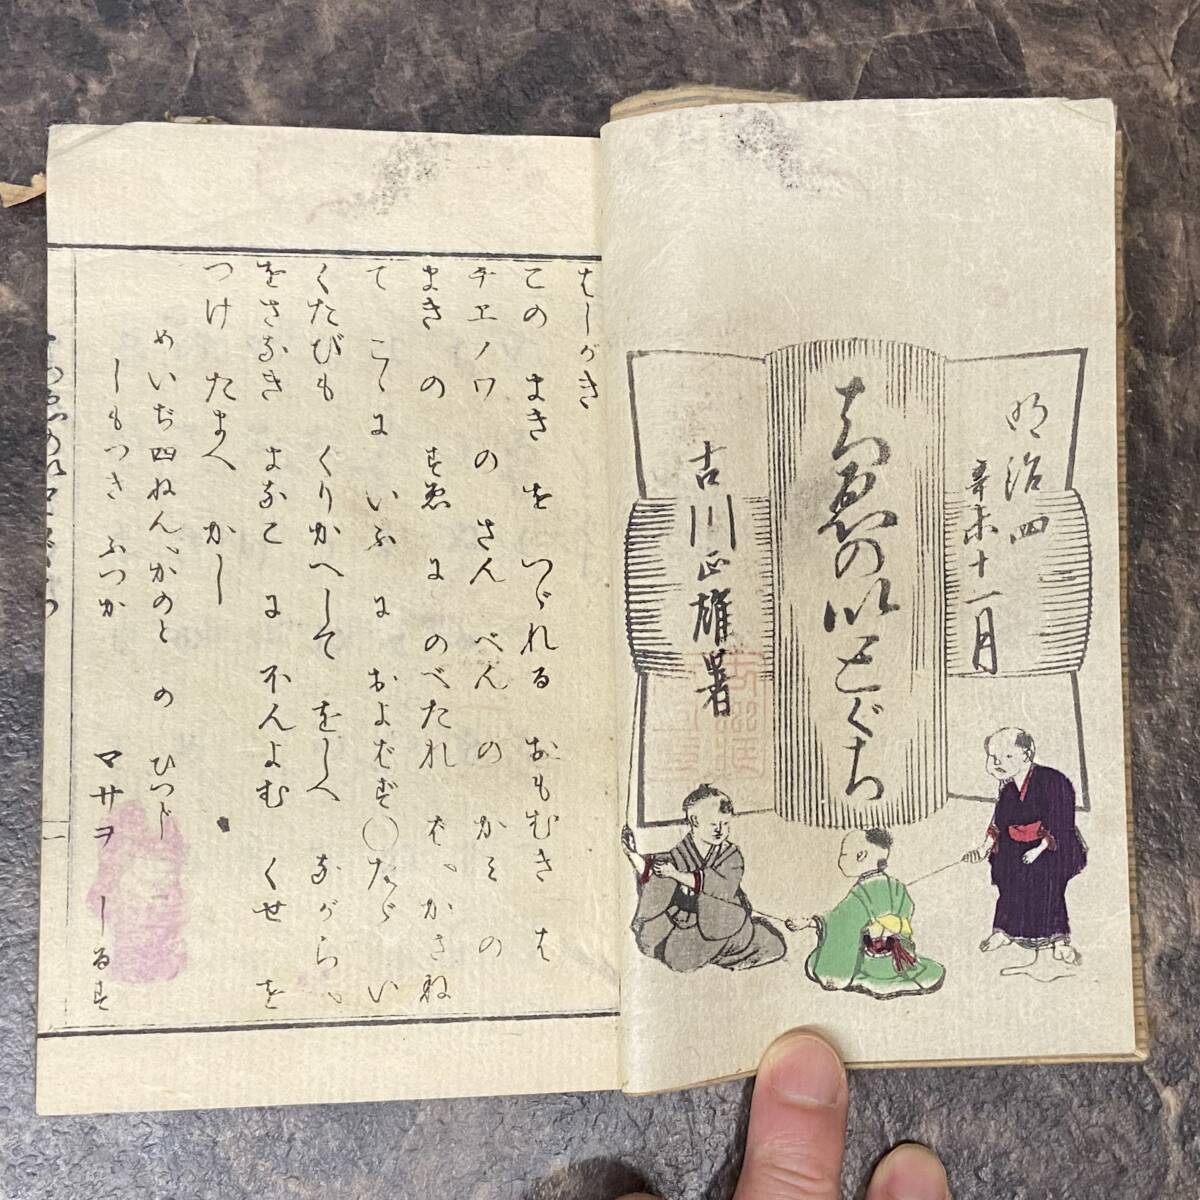 明治四
辛未十一月
ちゑのいとぐち
古川正雄著
はしがき
この まき を つゞれる おもむき は
チヱノワ の さん べん の かみ の
まき の すゑ に のべたれ ば、かさね
て こゝに いふ に およばず〇たゞ い
くたびも くりかへして をしへ ながら、
をさなき まなこ に ホんよむ くせ を
つけ たまへ かし
めいぢ四ねん、かのと の ひつじ
しもつき ふつか
マサヲ しるす